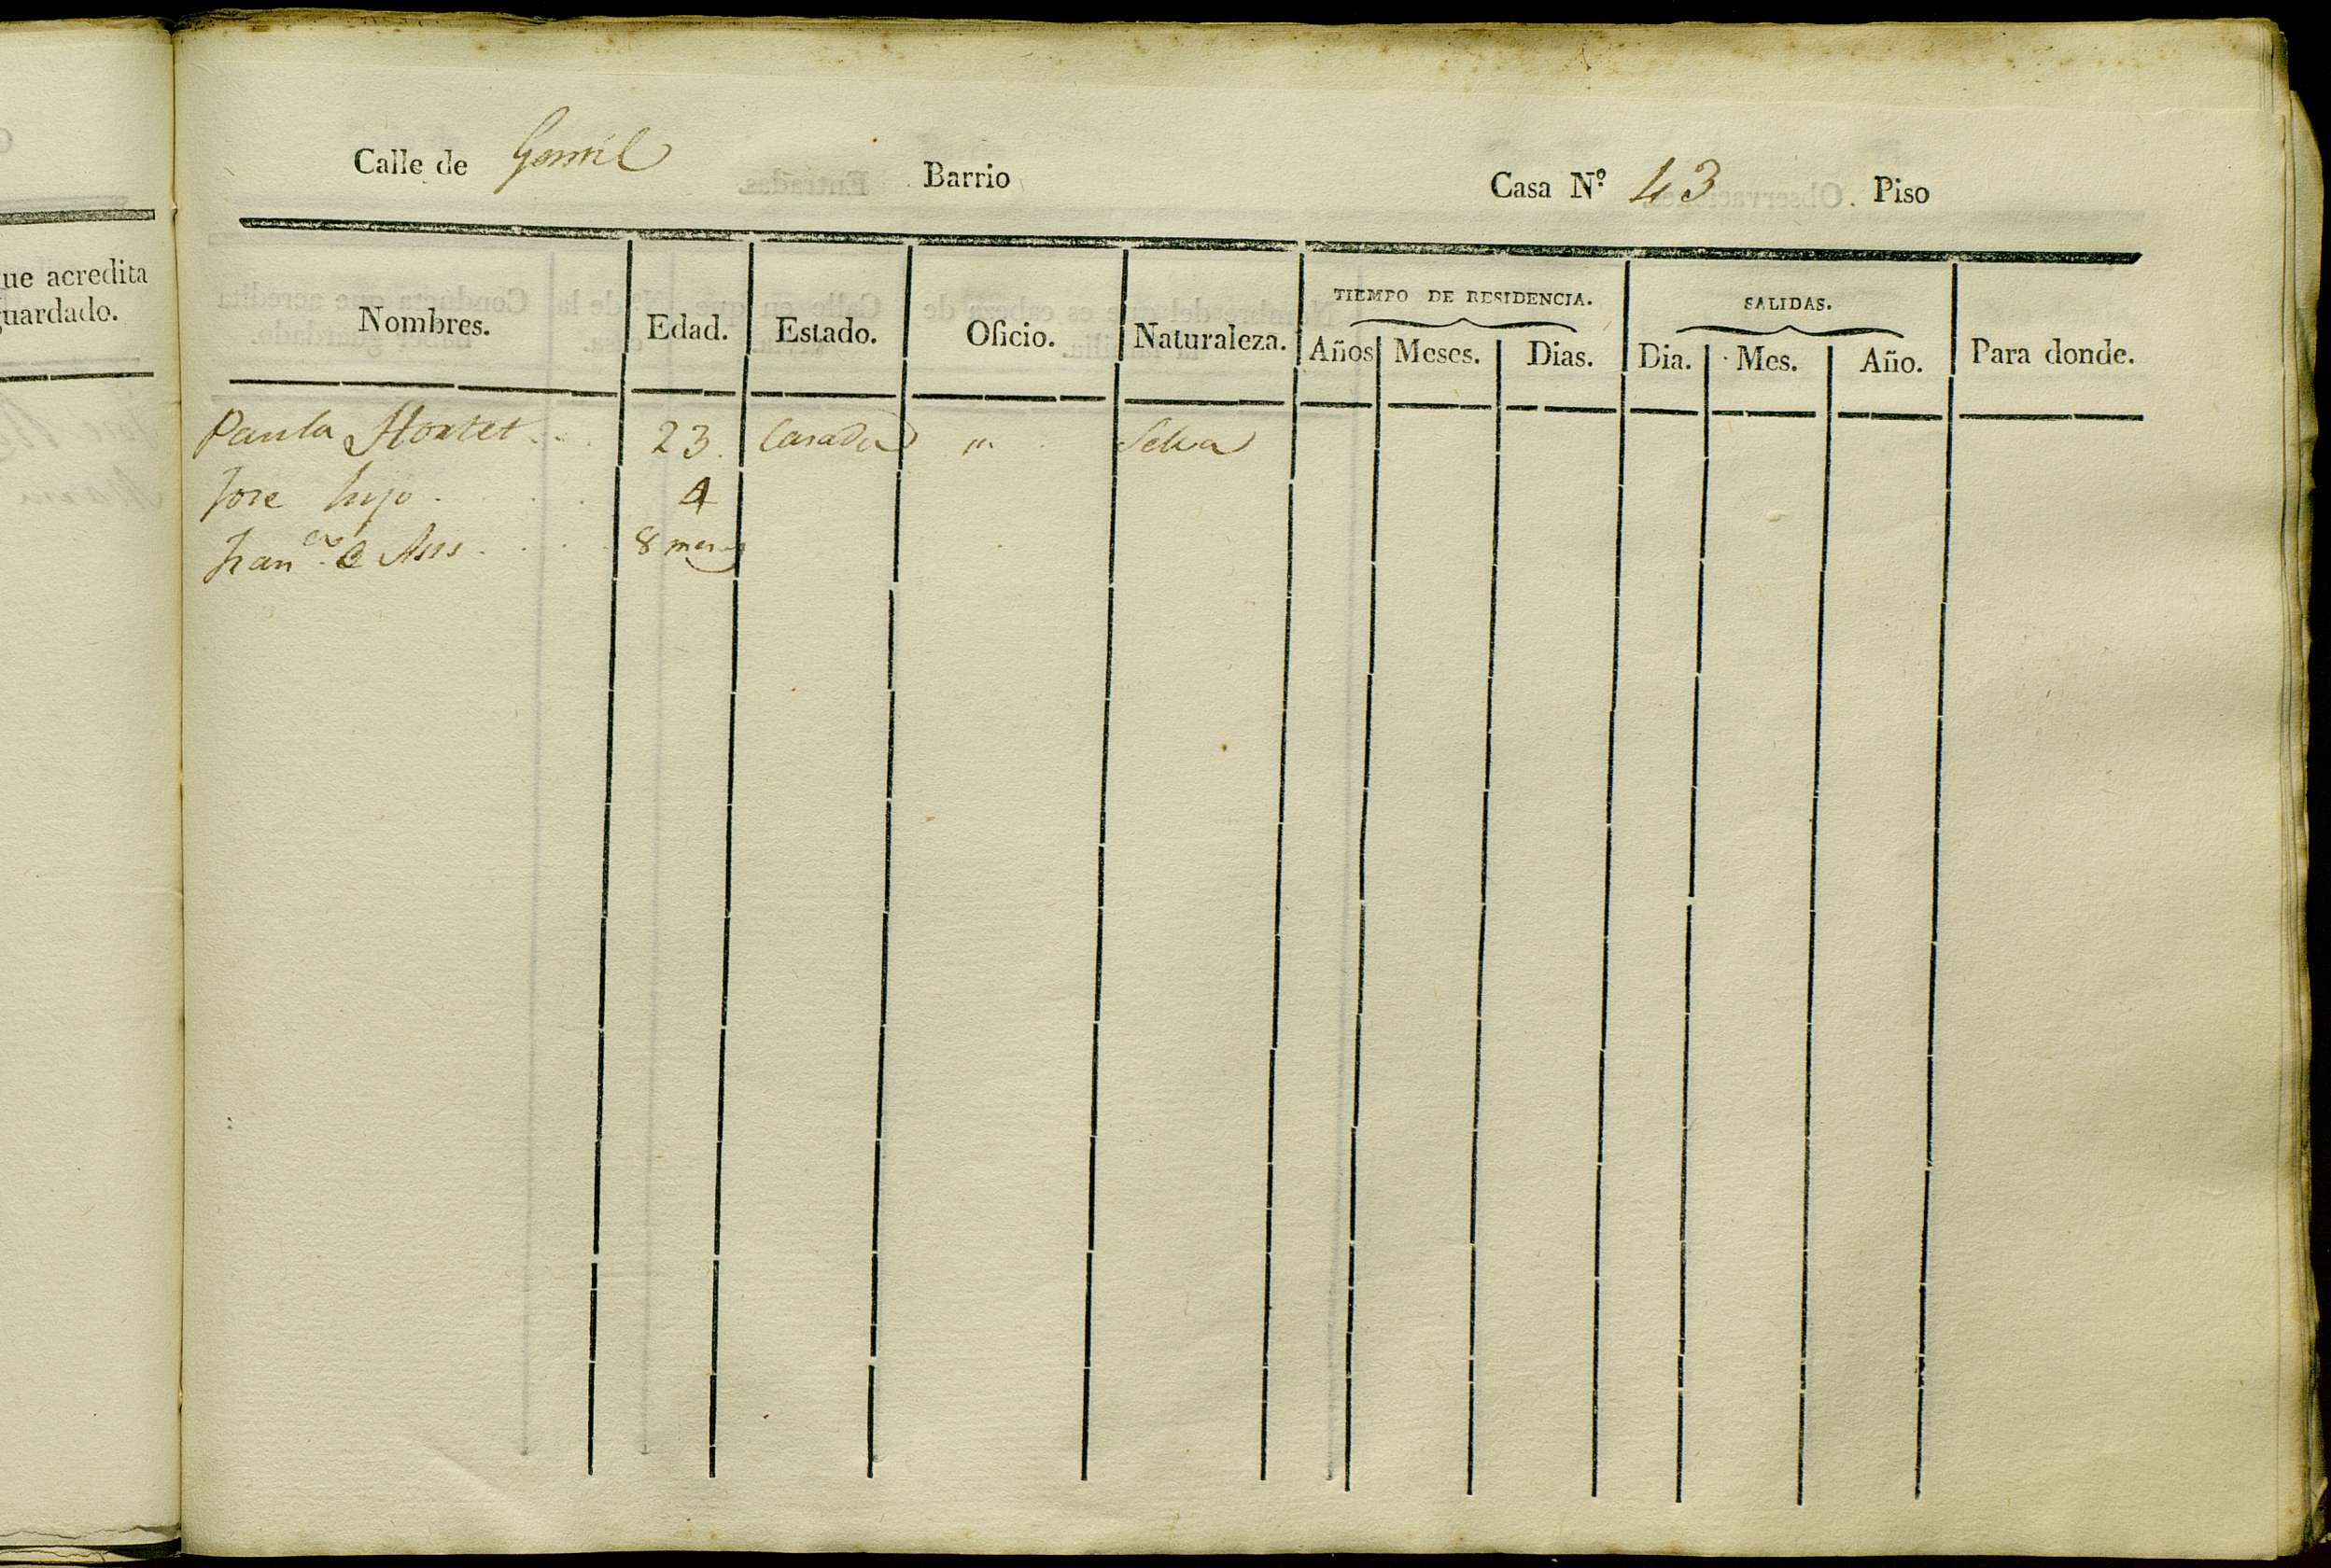 ue acredita
guardado.
Calle de Gomil Barrio Casa Nº 43 Piso
Nombres. Edad. Estado. Oficio. Naturaleza. TIEMPO DE RESIDENCIA. Años Meses. Dias. SALIDAS. Dia. Mes. Año. Para donde.
Paula Hortet 23. Casada " Selva
Jose hijo 4
Fran.co Asis 8 meses